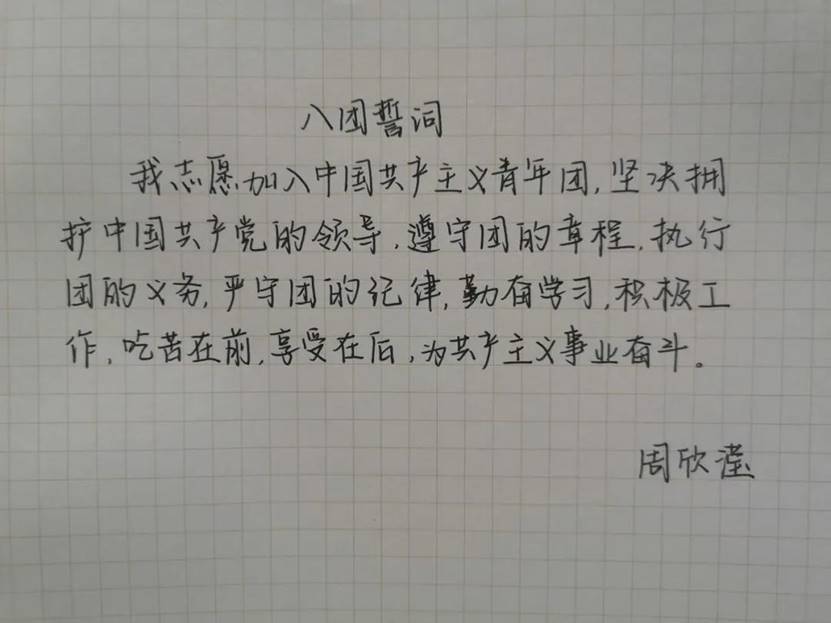 入团誓词
我志愿加入中国共产主义青年团,坚决拥
护中国共产党的领导,遵守团的章程,执行
团的义务,严守团的纪律,勤奋学习,积极工
作,吃苦在前,享受在后,为共产主义事业奋斗。
周欣滢